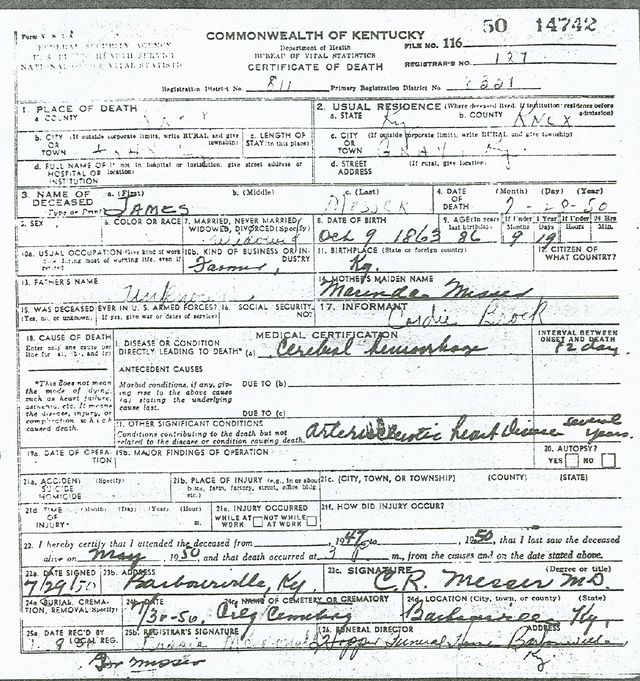 50 14742
COMMONWEALTH OF KENTUCKY
FEDERAL SECURITY AGENCY
Department of Health
FILE NO. 116
U. S. PUBLIC HEALTH SERVICE
BUREAU OF VITAL STATISTICS
REGISTRAR'S NO. 127
NATIONAL OFFICE OF VITAL STATISTICS
CERTIFICATE OF DEATH
Registration District No. 811 Primary Registration District No.
1. PLACE OF DEATH
a. COUNTY
2. USUAL RESIDENCE (Where deceased lived. If institution: residence before admission)
a. STATE Ky b. COUNTY KNOX
b. CITY (If outside corporate limits, write RURAL and give township) OR TOWN
c. LENGTH OF STAY (in this place)
c. CITY (If outside corporate limits, write RURAL and give township) OR TOWN GRAY Ky
d. FULL NAME OF (If not in hospital or institution, give street address or location) HOSPITAL OR INSTITUTION
d. STREET ADDRESS (If rural, give location)
3. NAME OF DECEASED (Type or Print)
a. (First) JAMES
b. (Middle)
c. (Last) Messer
4. DATE OF DEATH (Month) (Day) (Year) 7-28-50
5. SEX
6. COLOR OR RACE
7. MARRIED, NEVER MARRIED, WIDOWED, DIVORCED (Specify)
8. DATE OF BIRTH Oct 9 1863
9. AGE (In years last birthday) 86
If Under 1 Year Months 9 Days 19
If Under 24 Hrs Hours Min.
10a. USUAL OCCUPATION (Give kind of work done during most of working life, even if retired)
10b. KIND OF BUSINESS OR INDUSTRY
Farmer,
11. BIRTHPLACE (State or foreign country) Ky.
12. CITIZEN OF WHAT COUNTRY?
13. FATHER'S NAME Unknown
14. MOTHER'S MAIDEN NAME Messer
15. WAS DECEASED EVER IN U. S. ARMED FORCES? (Yes, no, or unknown) (If yes, give war or dates of service)
16. SOCIAL SECURITY NO.
17. INFORMANT Brock
18. CAUSE OF DEATH
Enter only one cause per line for (a), (b), and (c)
MEDICAL CERTIFICATION
INTERVAL BETWEEN ONSET AND DEATH
I. DISEASE OR CONDITION DIRECTLY LEADING TO DEATH* (a) Cerebral hemorrhage
ANTECEDENT CAUSES
*This does not mean the mode of dying, such as heart failure, asthenia, etc. It means the disease, injury, or complication which caused death.
Morbid conditions, if any, giving rise to the above cause (a) stating the underlying cause last.
DUE TO (b)
DUE TO (c)
II. OTHER SIGNIFICANT CONDITIONS
Conditions contributing to the death but not related to the disease or condition causing death.
heart disease several years.
19a. DATE OF OPERATION
19b. MAJOR FINDINGS OF OPERATION
20. AUTOPSY? YES NO
21a. ACCIDENT SUICIDE HOMICIDE (Specify)
21b. PLACE OF INJURY (e.g., in or about home, farm, factory, street, office bldg., etc.)
21c. (CITY, TOWN, OR TOWNSHIP) (COUNTY) (STATE)
21d. TIME OF INJURY (Month) (Day) (Year) (Hour) m.
21e. INJURY OCCURRED WHILE AT WORK NOT WHILE AT WORK
21f. HOW DID INJURY OCCUR?
22. I hereby certify that I attended the deceased from 1947, to 1950, that I last saw the deceased
alive on May 1950, and that death occurred at 3 m., from the causes and on the date stated above.
23a. DATE SIGNED 7/29/50
23b. ADDRESS Barbourville, Ky
23c. SIGNATURE (Degree or title) C. R. Messer M.D.
24a. BURIAL, CREMATION, REMOVAL (Specify)
24b. DATE 7/30-50,
24c. NAME OF CEMETERY OR CREMATORY Cemetery
24d. LOCATION (City, town, or county) (State) Barbourville Ky,
25a. DATE REC'D BY LOCAL REG.
25b. REGISTRAR'S SIGNATURE
26. FUNERAL DIRECTOR ADDRESS Hopper Funeral Home Barbourville Ky
Messer